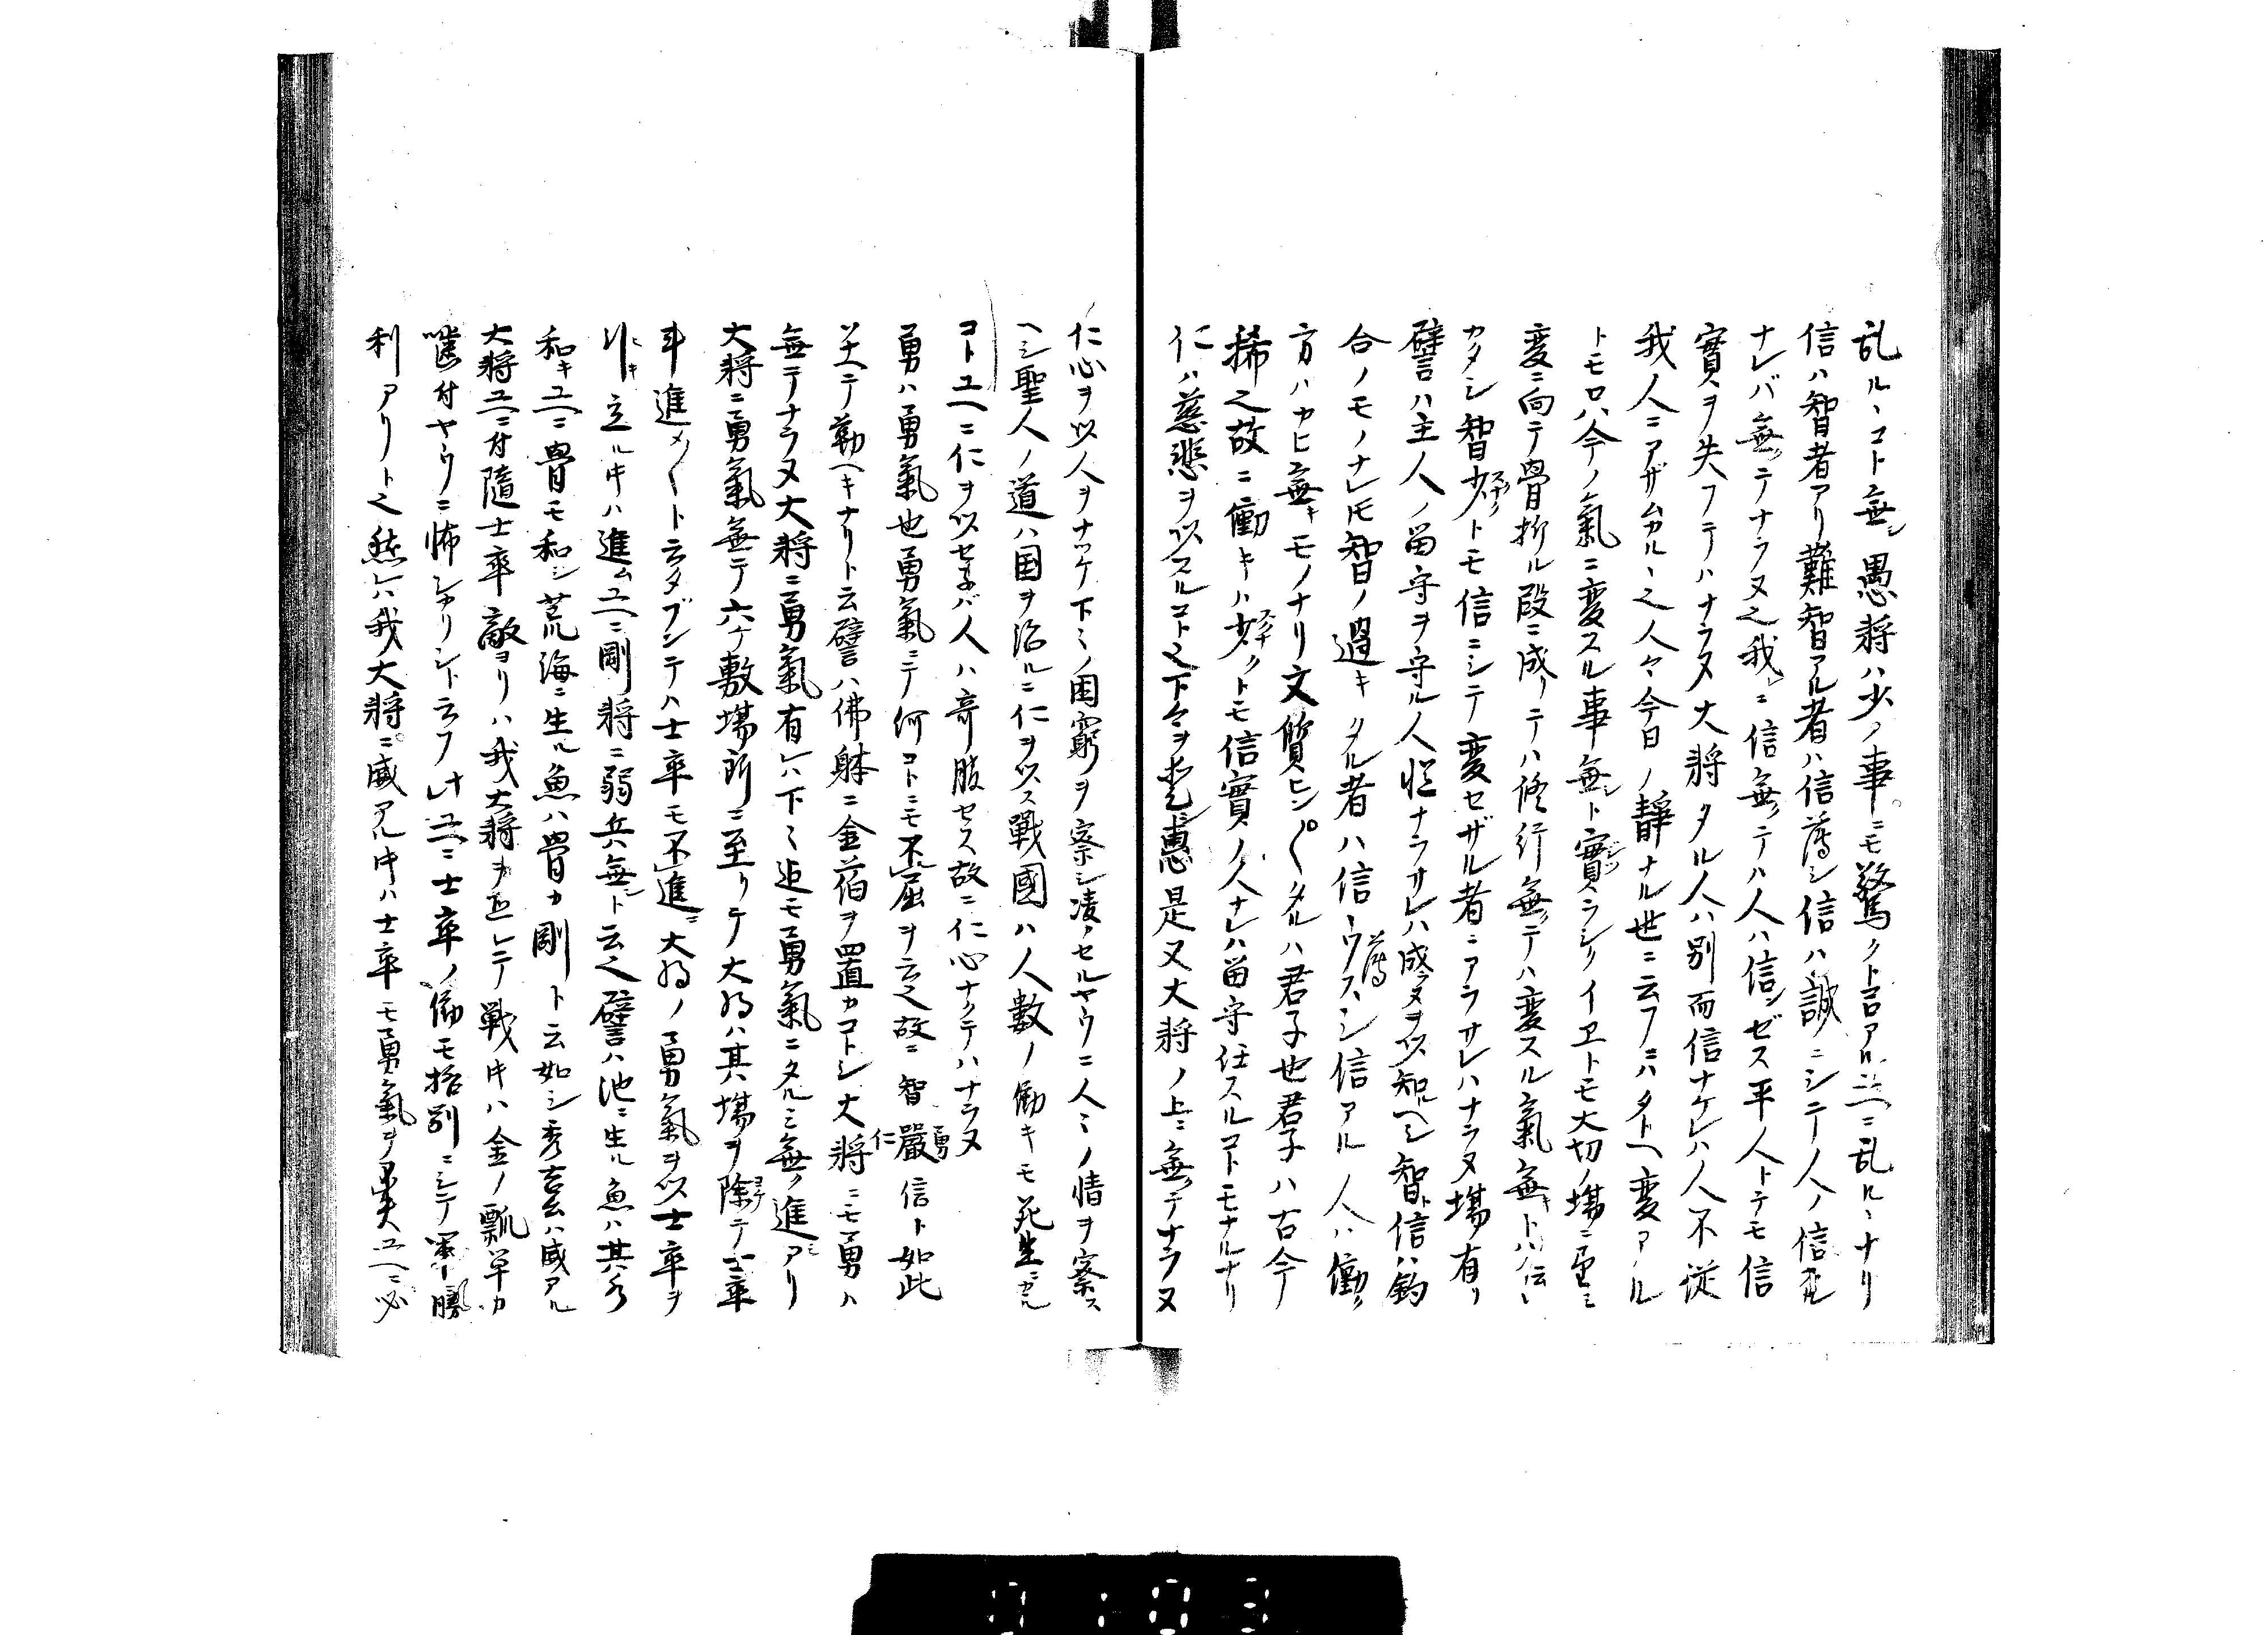 乱ルヽコト無シ愚将ハ少ノ事ニモ驚クトコロアルユヘニ乱ルヽナリ
信ハ智者アリ難智アル者ハ信薄シ信ハ誠ニシテ人ノ信ズル
ナレバ無テナラヌ之我ニ信無テハ人ハ信ゼス平人トテモ信
實ヲ失フテハナラヌ大将タル人ハ別而信ナケレハ人不従
我人ニアザムカルヽ之人々今日ノ静ナル世ニ云フニハタトヘ変アル
トモロハ今ノ氣ニ変スル事無ト實ラシクイヱトモ大切ノ場ニ至ミ
変ニ向テ骨折ル段ニ成リテハ修行無テハ変スル氣無キトハ云ヽ
カタシ智少トモ信ニシテ変セザル者ニアラサレハナラヌ場有リ
譬ハ主人ノ留守ヲ守ル人慥ナラサレハ成ラヌヲ以知ヘシ智ト信ハ釣
合ノモノナレ𪜈智ノ過キタル者ハ信ウスシ信アル人ハ働ク
方ハカヒ無キモノナリ文質ヒン〳〵タルハ君子也君子ハ古今
稀之故ニ働キハ少クトモ信實ノ人ナレハ留守任スルコトモナルナリ
仁ハ慈悲ヲ以スルコト之下々ヲ恵是又大将ノ上ニ無テナラヌ
仁心ヲ以人ヲナツケ下ミノ困窮ヲ察シ凌セルヤウニ人ミノ情ヲ察ス
ヘシ聖人ノ道ハ国ヲ治ルニ仁ヲ以ス戰國ハ人数ノ働キモ死生ニカヽル
コトユヘニ仁ヲ以セネバ人ハ帰服セス故ニ仁心ナクテハナラヌ
勇ハ勇氣也勇氣ニテ何コトニモ不屈ヲ云之故ニ智嚴勇仁信ト如此
ソナヘテ勤ヘキナリト云譬ハ佛躰ニ金箔ヲ置カコトシ大将ニモ勇ハ
無テナラヌ大将ニ勇氣有レハ下ミ迄モ勇氣ニタルミ無ク進ミアリ
大将ニ勇氣無テ六ケ敷場所ニ至リテ大将ハ其場ヲ除テ士卒
斗進メ〳〵ト云タブンテハ士卒モ不進ニ大将ノ勇氣ヲ以士卒ヲ
引キ立ル𪜈ハ進ムユヘニ剛将ニ弱兵無シト云之譬ハ池ニ生ル魚ハ其水
和キユヘニ骨モ和シ荒海ニ生ル魚ハ骨カ剛ト云如シ秀吉ハ威アル
大将ユヘニ付随士卒敵ヨリハ我大将ヲ恐レテ戦𪜈ハ金ノ瓢箪カ
噛付ヤウニ怖シカリシト云フ此ユヘニ士卒ノ働モ格別ニシテ軍勝
利アリト之然レハ我大将ニ威アル𪜈ハ士卒モ勇氣ヲ異ユヘニ必